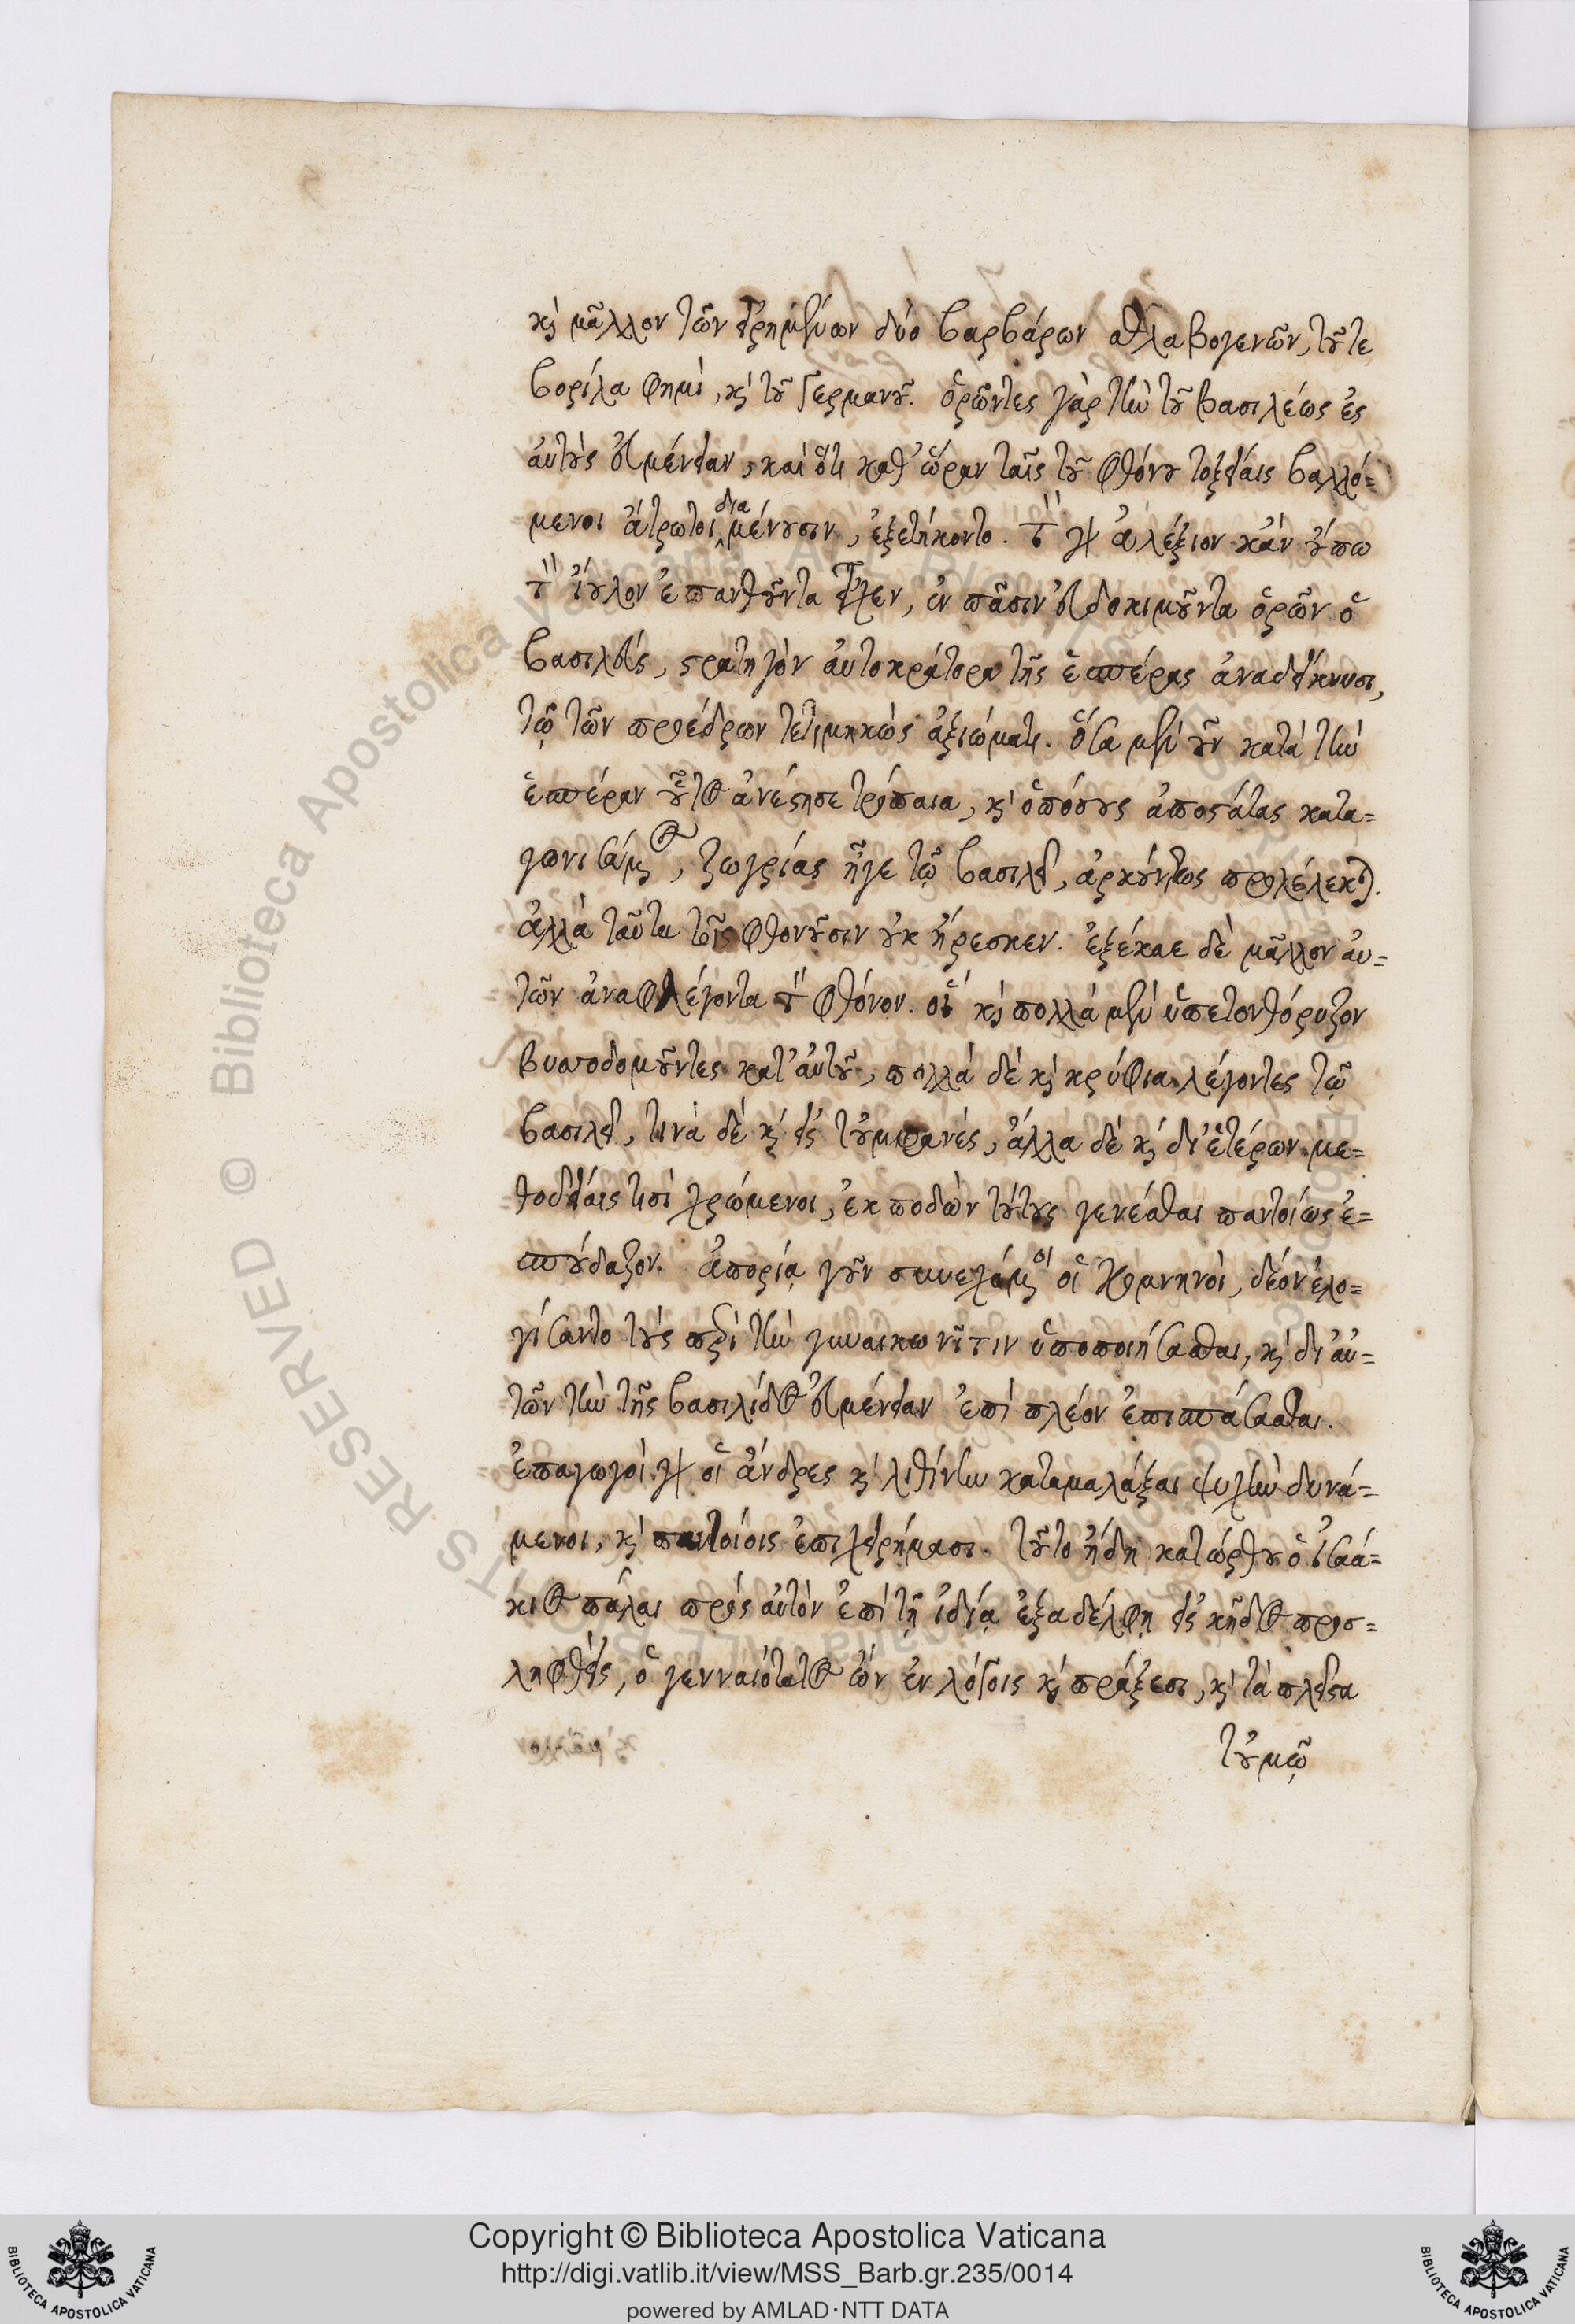 καὶ μᾶλλον τῶν εἰρημένων δύο βαρβάρων σθλαβογενῶν, τοῦ τε
βορίλα φημὶ, καὶ τοῦ Γερμανοῦ. ὁρῶντες γὰρ τὴν τοῦ βασιλέως ἐς
αὐτοὺς εὐμένειαν, καὶ ὅτι καθ' ὥραν ταῖς τοῦ φθόνου τοξείαις βαλλό=
μενοι ἄτρωτοι διαμένουσιν, ἐξετήκοντο. τὸν γὰρ ἀλέξιον κἂν οὔπω
τὸν ἴουλον ἐπανθοῦντα εἶχεν, ἐν πᾶσιν εὐδοκιμοῦντα ὁρῶν ὁ
βασιλεὺς, στρατηγὸν αὐτοκράτορα τῆς ἑσπέρας ἀναδείκνυσι,
τῷ τῶν προέδρων τετιμηκὼς ἀξιώματι. ὅσα μὲν οὖν κατὰ τὴν
ἑσπέραν οὗτος ἀνέστησε τρόπαια, καὶ ὁπόσους ἀποστάτας κατα=
γωνισάμενος, ζωγρίας ἦγε τῷ βασιλεῖ, ἀρκούντως προλέλεκται.
ἀλλὰ ταῦτα τοῖς φθονοῦσιν οὐκ ἤρεσκεν. ἐξέκαε δὲ μᾶλλον αὐ=
τῶν ἀναφλέγοντα τὸν φθόνον. οἳ καὶ πολλὰ μὲν ὑπετονθόρυζον
βυσσοδομοῦντες κατ' αὐτοῦ, πολλὰ δὲ καὶ κρύφια λέγοντες τῷ
βασιλεῖ, τινὰ δὲ καὶ εἰς τοὐμφανές, ἄλλα δὲ καὶ δι' ἑτέρων με=
θοδείαις τισὶ χρώμενοι, ἐκποδὼν τούτους γενέσθαι παντοίως ἐ=
σπούδαζον. ἀπορίᾳ γοῦν συνεχόμενοι οἱ κομνηνοὶ, δέον ἐλο=
γίσαντο τοὺς περὶ τὴν γυναικωνῖτιν ὑποποιήσασθαι, καὶ δι' αὐ=
τῶν τὴν τῆς βασιλίδος εὐμένειαν ἐπὶ πλέον ἐπισπάσασθαι.
ἐπαγωγοὶ γὰρ οἱ ἄνδρες καὶ λιθίνην καταμαλάξαι ψυχὴν δυνά=
μενοι, καὶ παντοίοις ἐπιχειρήμασι. τοῦτο ἤδη κατώρθου ὁ ἰσαά=
κιος πάλαι πρὸς αὐτὸν ἐπὶ τῇ ἰδίᾳ ἐξαδέλφῃ εἰς κῆδος προσ=
ληφθεὶς, ὁ γενναιότατος ὢν ἐν λόγοις καὶ πράξεσι, καὶ τὰ πλεῖστα
τοὐμῷ